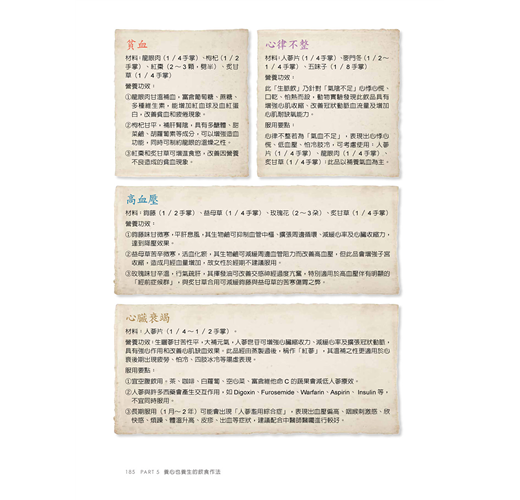 貧血
材料：龍眼肉（1／4手掌）、枸杞（1／2
手掌）、紅棗（2～3顆，剪半）、炙甘
草（1／4手掌）
營養功效：
①龍眼肉甘溫補血，富含葡萄糖、蔗糖、
多種維生素，能增加紅血球及血紅蛋
白，改善貧血和疲倦現象。
②枸杞甘平，補肝腎陰，具有多醣體、甜
菜鹼、胡蘿蔔素等成分，可以增強造血
功能，同時可制約龍眼的溫燥之性。
③紅棗和炙甘草可增進食慾，改善因營養
不良造成的貧血現象。
心律不整
材料：人蔘片（1／4手掌）、麥門冬（1／2～
1／4手掌）、五味子（1／8手掌）
營養功效：
此「生脈飲」乃針對「氣陰不足」心悸心慌、
口乾、怕熱而設，動物實驗發現此飲品具有
增強心肌收縮、改善冠狀動脈血流量及增加
心肌耐缺氧能力。
服用要點：
心律不整若為「氣血不足」，表現出心悸心
慌、低血壓、怕冷肢冷，可考慮使用：人蔘
片（1／4手掌）、龍眼肉（1／4手掌）、
炙甘草（1／4手掌），此品以補養氣血為主。
高血壓
材料：鉤藤（1／2手掌）、益母草（1／4手掌）、玫瑰花（2～3朵）、炙甘草（1／4手掌）
營養功效：
①鉤藤味甘微寒，平肝息風，其生物鹼可抑制血管中樞、擴張周邊循環、減緩心率及心臟收縮力，
達到降壓效果。
②益母草苦辛微寒，活血化瘀，其生物鹼可減緩周邊血管阻力而改善高血壓，但此品會增強子宮
收縮，造成月經血量增加，故女性於經期不建議服用。
③玫瑰味甘辛溫，行氣疏肝，其揮發油可改善交感神經過度亢奮，特別適用於高血壓伴有明顯的
「經前症候群」，與炙甘草合用可減緩鉤藤與益母草的苦寒傷胃之弊。
心臟衰竭
材料：人蔘片（1／4～1／2手掌）。
營養功效：生曬蔘甘苦性平，大補元氣，人蔘皂苷可增強心臟縮力、減緩心率及擴張冠狀動脈，
具有強心作用和改善心肌缺血效果。此品經由蒸製過後，稱作「紅蔘」，其溫補之性更適用於心
衰後期出現疲勞、怕冷、四肢冰冷等陽虛表現。
服用要點：
①宜空腹飲用，茶、咖啡、白蘿蔔、空心菜、富含維他命C的蔬果會減低人蔘療效。
②人蔘與許多西藥會產生交互作用，如 Digoxin、Furosemide、Warfarin、Aspirin、Insulin 等，
不宜同時服用。
③長期服用（1月～2年）可能會出現「人蔘濫用綜合症」，表現出血壓偏高、咽喉刺激感、欣
快感、煩躁、體溫升高、皮疹、出血等症狀，建議配合中醫師醫囑進行較好。
185 PART 5 養心也養生的飲食作法